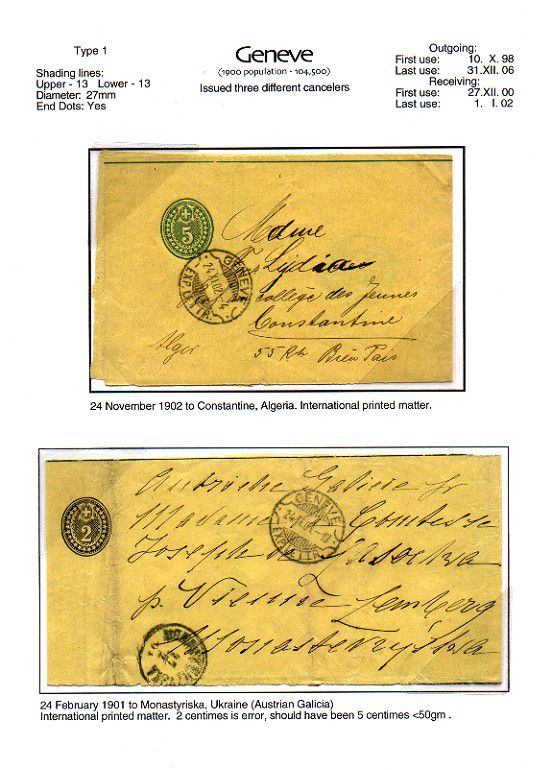 Type 1
Geneve
(1900 population - 104,500)
Issued three different cancelers
Shading lines:
Upper - 13 Lower - 13
Diameter: 27mm
End Dots: Yes
Outgoing:
First use: 10. X. 98
Last use: 31.XII. 06
Receiving:
First use: 27.XII. 00
Last use: 1. I. 02
5
GENEVE
24.XI.02
EXP. LETTR.
Mdme
collège des Jeunes
Constantine
Alger
24 November 1902 to Constantine, Algeria. International printed matter.
2
GENEVE
EXP. LETTR.
Autriche Galicie
Madame Comtesse
Joseph
p. Vienne Lemberg
Monasterzyska
24 February 1901 to Monastyriska, Ukraine (Austrian Galicia)
International printed matter. 2 centimes is error, should have been 5 centimes <50gm .